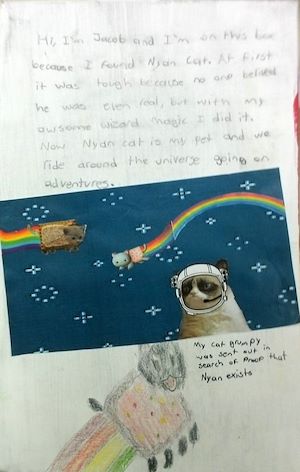 Hi, I'm Jacob and I'm on this box
because I found Nyan Cat. At first
it was tough because no one belived
he was even real, but with my
awsome wizard magic I did it.
Now Nyan cat is my pet and we
ride around the universe going on
adventures.
My cat grumpy
was sent out in
search of Proof that
Nyan exists